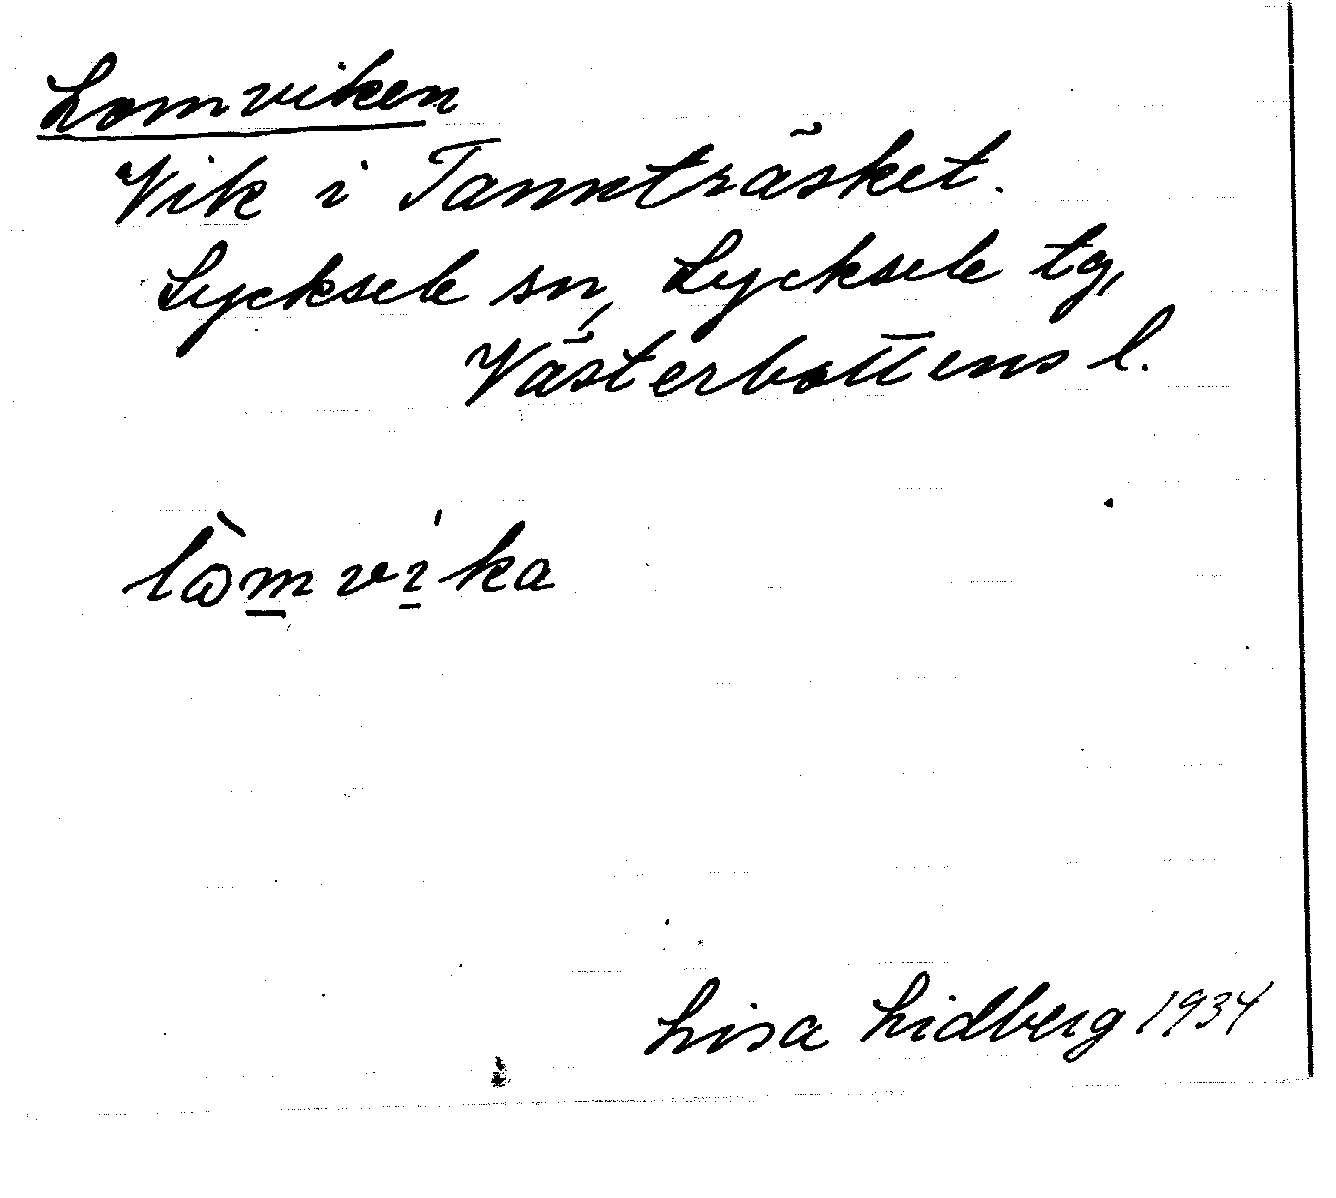 Lomviken
Vik i Tannträsket.
Lycksele sn, Lycksele tg,
Västerbottens l.
lò̱m̱vi̱ka
Lisa Lidberg 1934